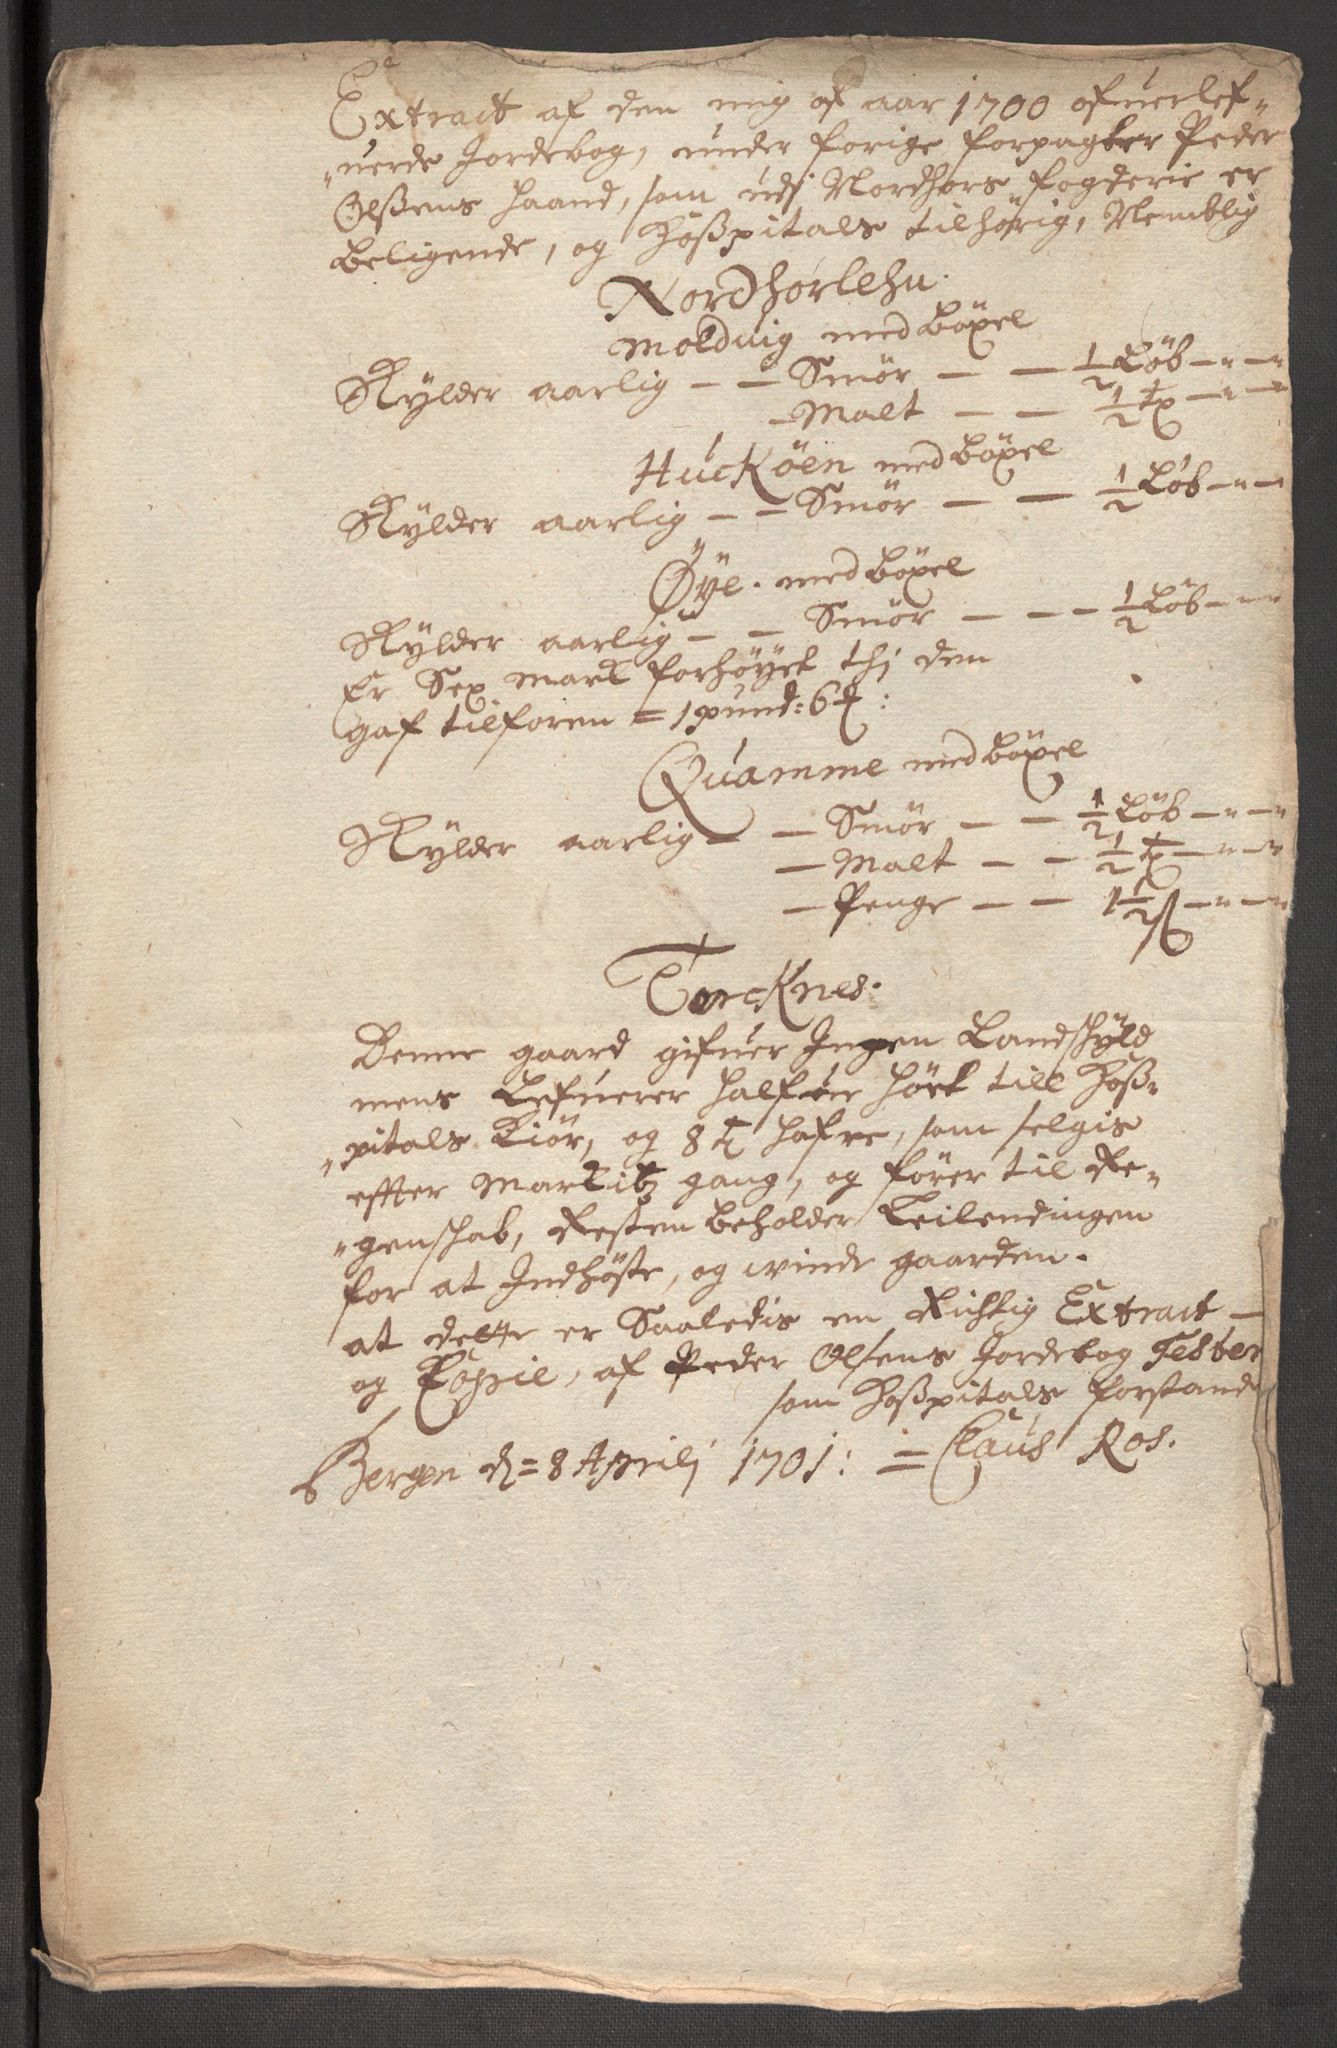 Extract af den mig af aar 1700 ofuerlef-
"uerde Jordebog, under forige forpagter Peder
Olßens haand, som udj Nordhors fogderie er
beligende, og Hoßpitals tilhörig, Nemblig
Nordhorlehn.
Molduig med böxel
Skylder aarlig — — Smör — — 1/2 Löb — " — "
— Malt — — 1/2 tt — " — "
Huckøen med böxel
Skylder aarlig — — Smör — — 1/2 Löb — " —
Øÿe. med böxel
Skylder aarlig — — Smör — — — 1/2 Löb — " — "
Er Sex mark forhöyet thj den
gaf tilforen = 1 pund: 6 :
Quamme med böxel
Skÿlder aarlig — — Smör — — 1/2 Löb — " — "
— Malt — — 1/2 tt — " — "
— Penge — — 1 1/2 ß — " — "
Torcknes.
Denne gaard gifuer Ingen Landschÿld
mens Lefuerer halfue höet till Hoß-
"pitals Kiör, og 8 hafre, som selgis
effter Markitz gang, og förer til Re-
"genschab, Resten beholder Leilendingen
for at Indhöste, og winde gaarden.
at dette er Saaledis en Richtig Extract —
og Copie, af Peder Olsens Jordebog Tester
som Hoßpitals forstand
Bergen d = 8 Aprilj 1701: = Claus Ros.